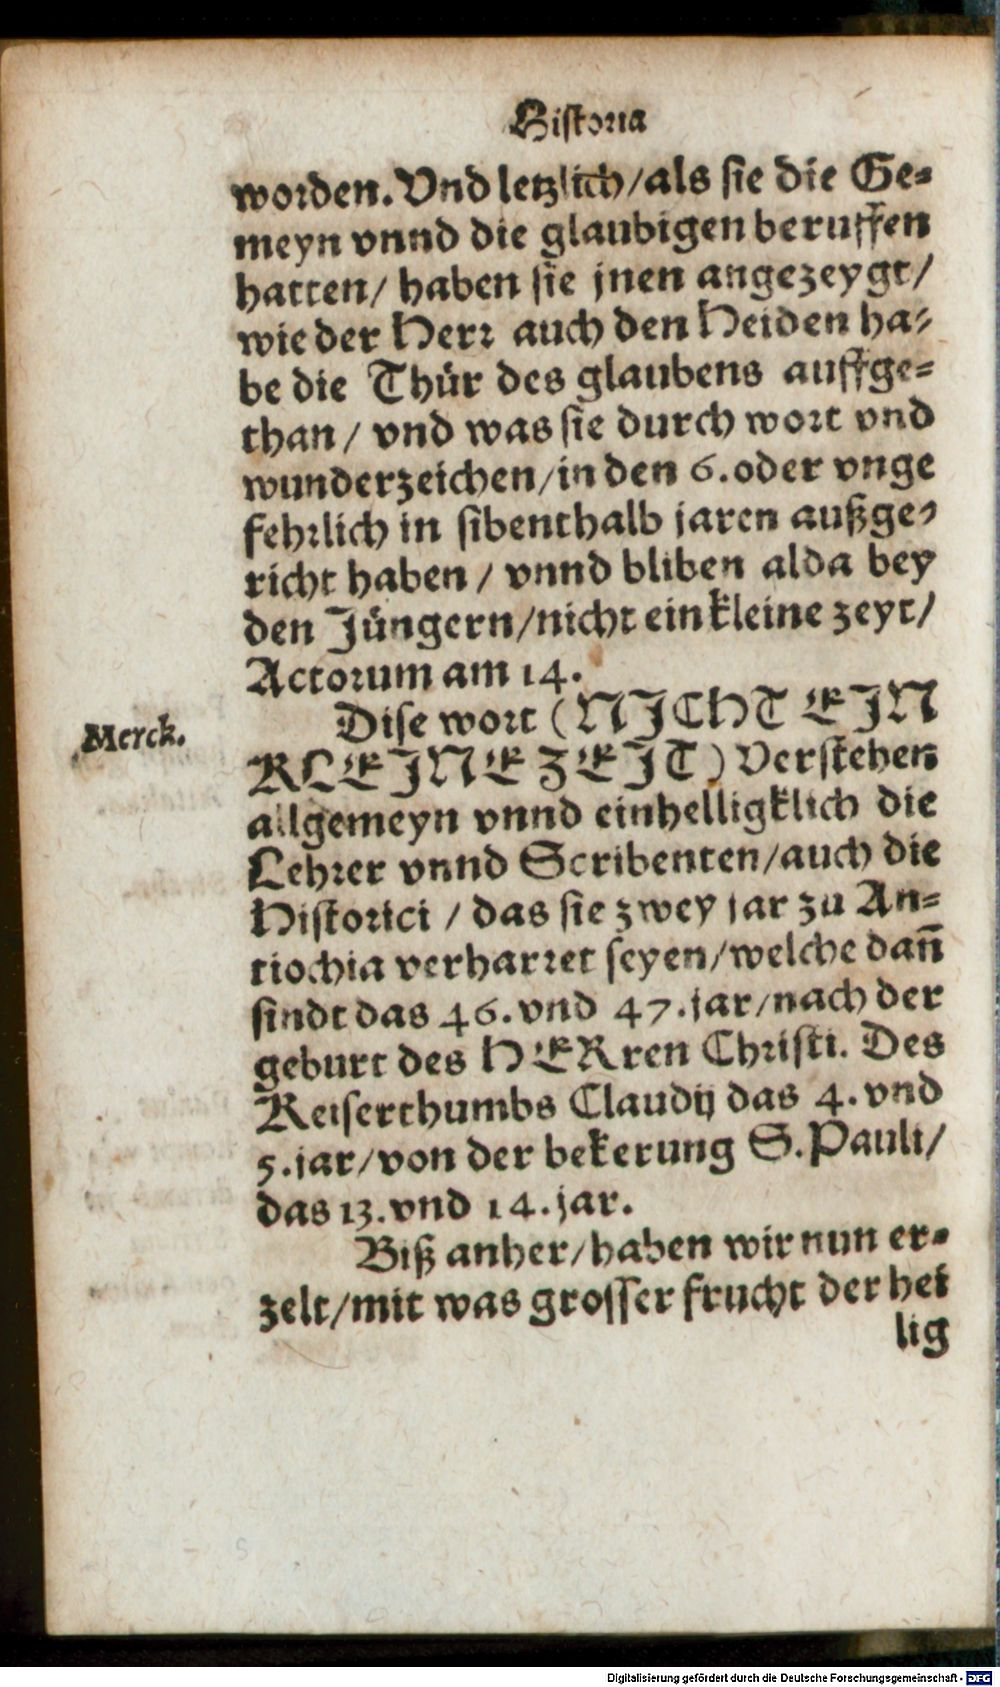 Historia
worden. Vnd letzlich/als sie die Ge-
meyn vnnd die glaubigen beruffen
hatten/ haben sie jnen angezeygt/
wie der Herr auch den Heiden ha-
be die Thür des glaubens auffge-
than/ vnd was sie durch wort vnd
wunderzeichen/in den 6. oder vnge
fehrlich in sibenthalb jaren außge-
richt haben / vnnd bliben alda bey
den Jüngern/nicht ein kleine zeyt/
Actorum am 14.
Dise wort (NJCHT EJN
Merck.
KLEJNE ZEJT) Verstehen
allgemeyn vnnd einhelligklich die
Lehrer vnnd Scribenten/auch die
Historici / das sie zwey jar zu An-
tiochia verharret seyen/welche dañ
sindt das 46. vnd 47. jar/nach der
geburt des HERren Christi. Des
Keiserthumbs Claudij das 4. vnd
5. jar/von der bekerung S. Pauli/
das 13. vnd 14. jar.
Biß anher/haben wir nun er-
zelt/mit was grosser frucht der hei
lig
Digitalisierung gefördert durch die Deutsche Forschungsgemeinschaft - DFG